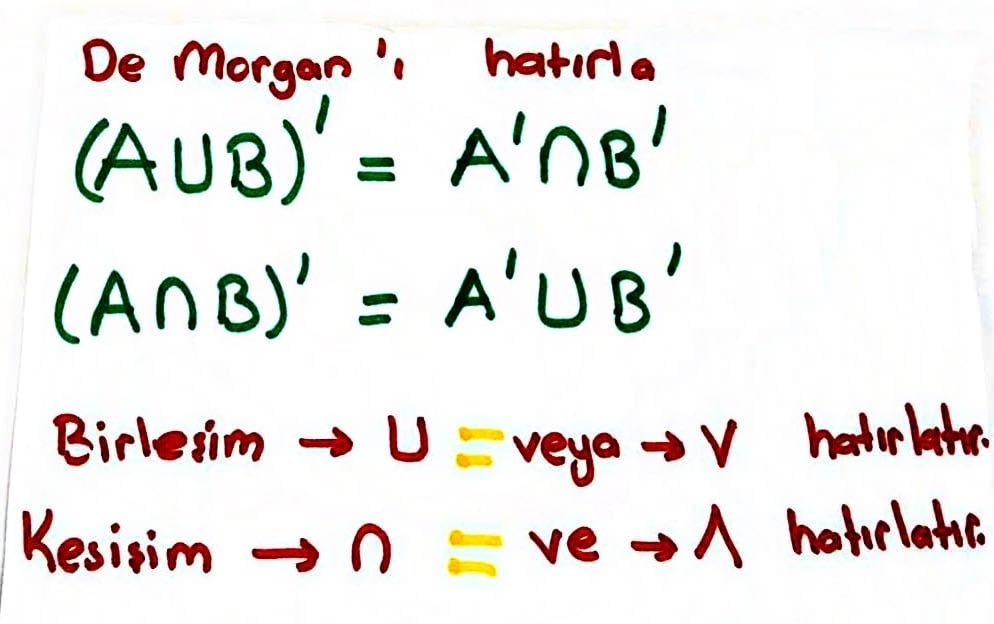 De Morgan'ı hatırla
(A∪B)' = A'∩B'
(A∩B)' = A'∪B'
Birleşim → ∪ = veya → ∨ hatırlatır.
Kesişim → ∩ = ve → ∧ hatırlatır.